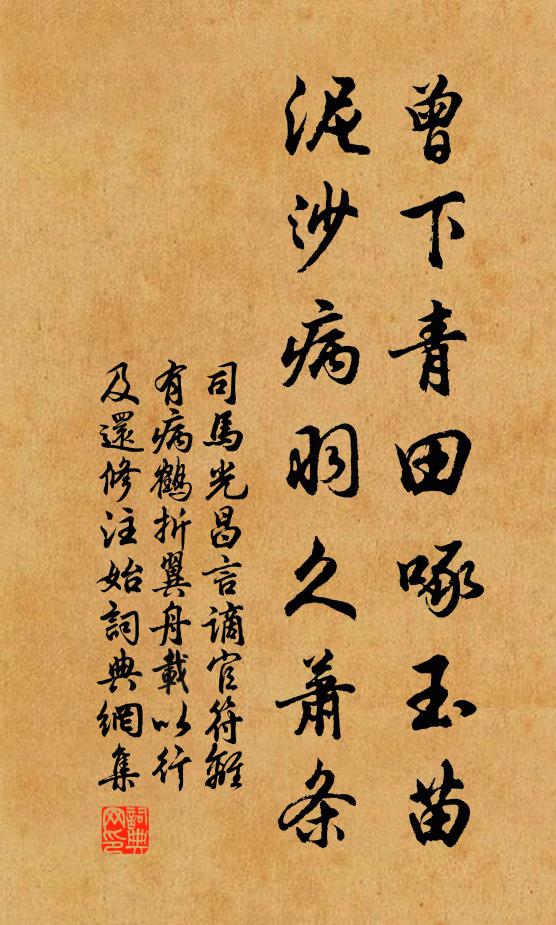 曾下青田啄玉苗
泥沙病羽久萧条
司馬光昌言謫官符離
有病鶴折翼舟載以行
及還修注始詞典網集
詞典
网印